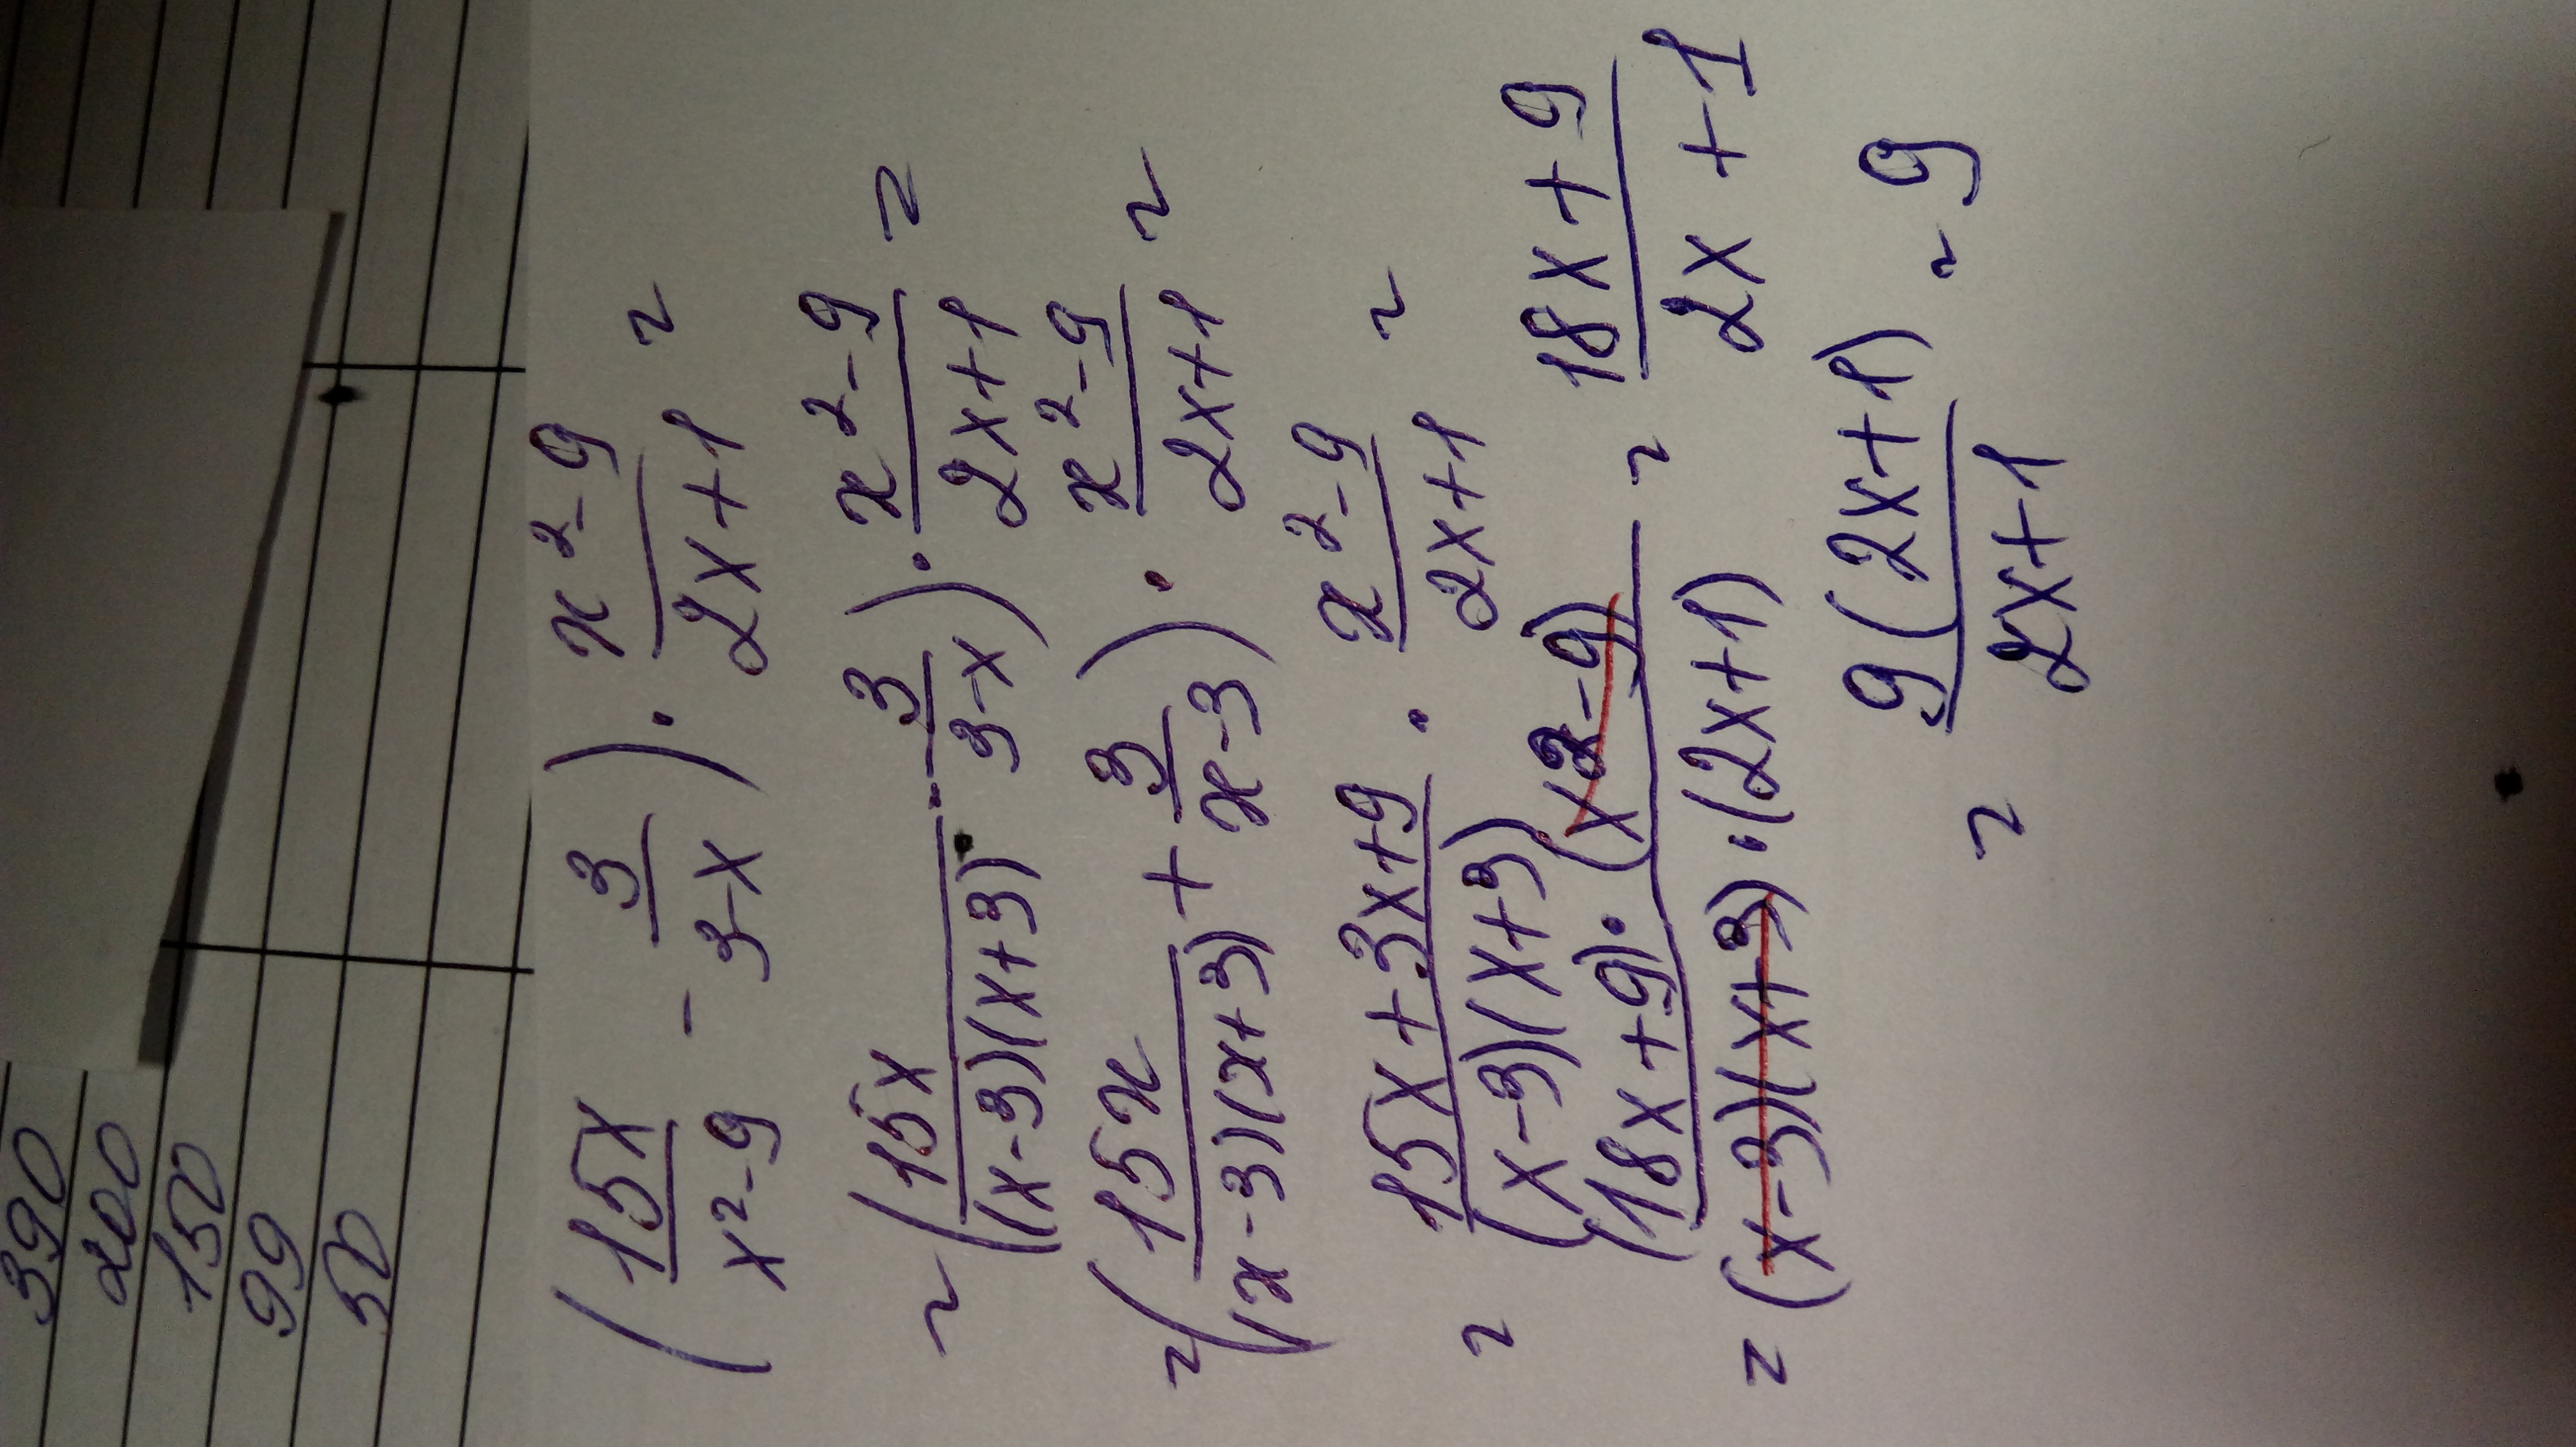 390
200
150
99
50
(15x/(x²-9) - 3/(3-x)) · (x²-9)/(2x+1) =
= (15x/((x-3)(x+3)) - 3/(3-x)) · (x²-9)/(2x+1) =
= (15x/((x-3)(x+3)) + 3/(x-3)) · (x²-9)/(2x+1) =
= (15x+3x+9)/((x-3)(x+3)) · (x²-9)/(2x+1) =
= ((18x+9)·(x²-9))/((x-3)(x+3)·(2x+1)) = (18x+9)/(2x+1)
= 9(2x+1)/(2x+1) = 9